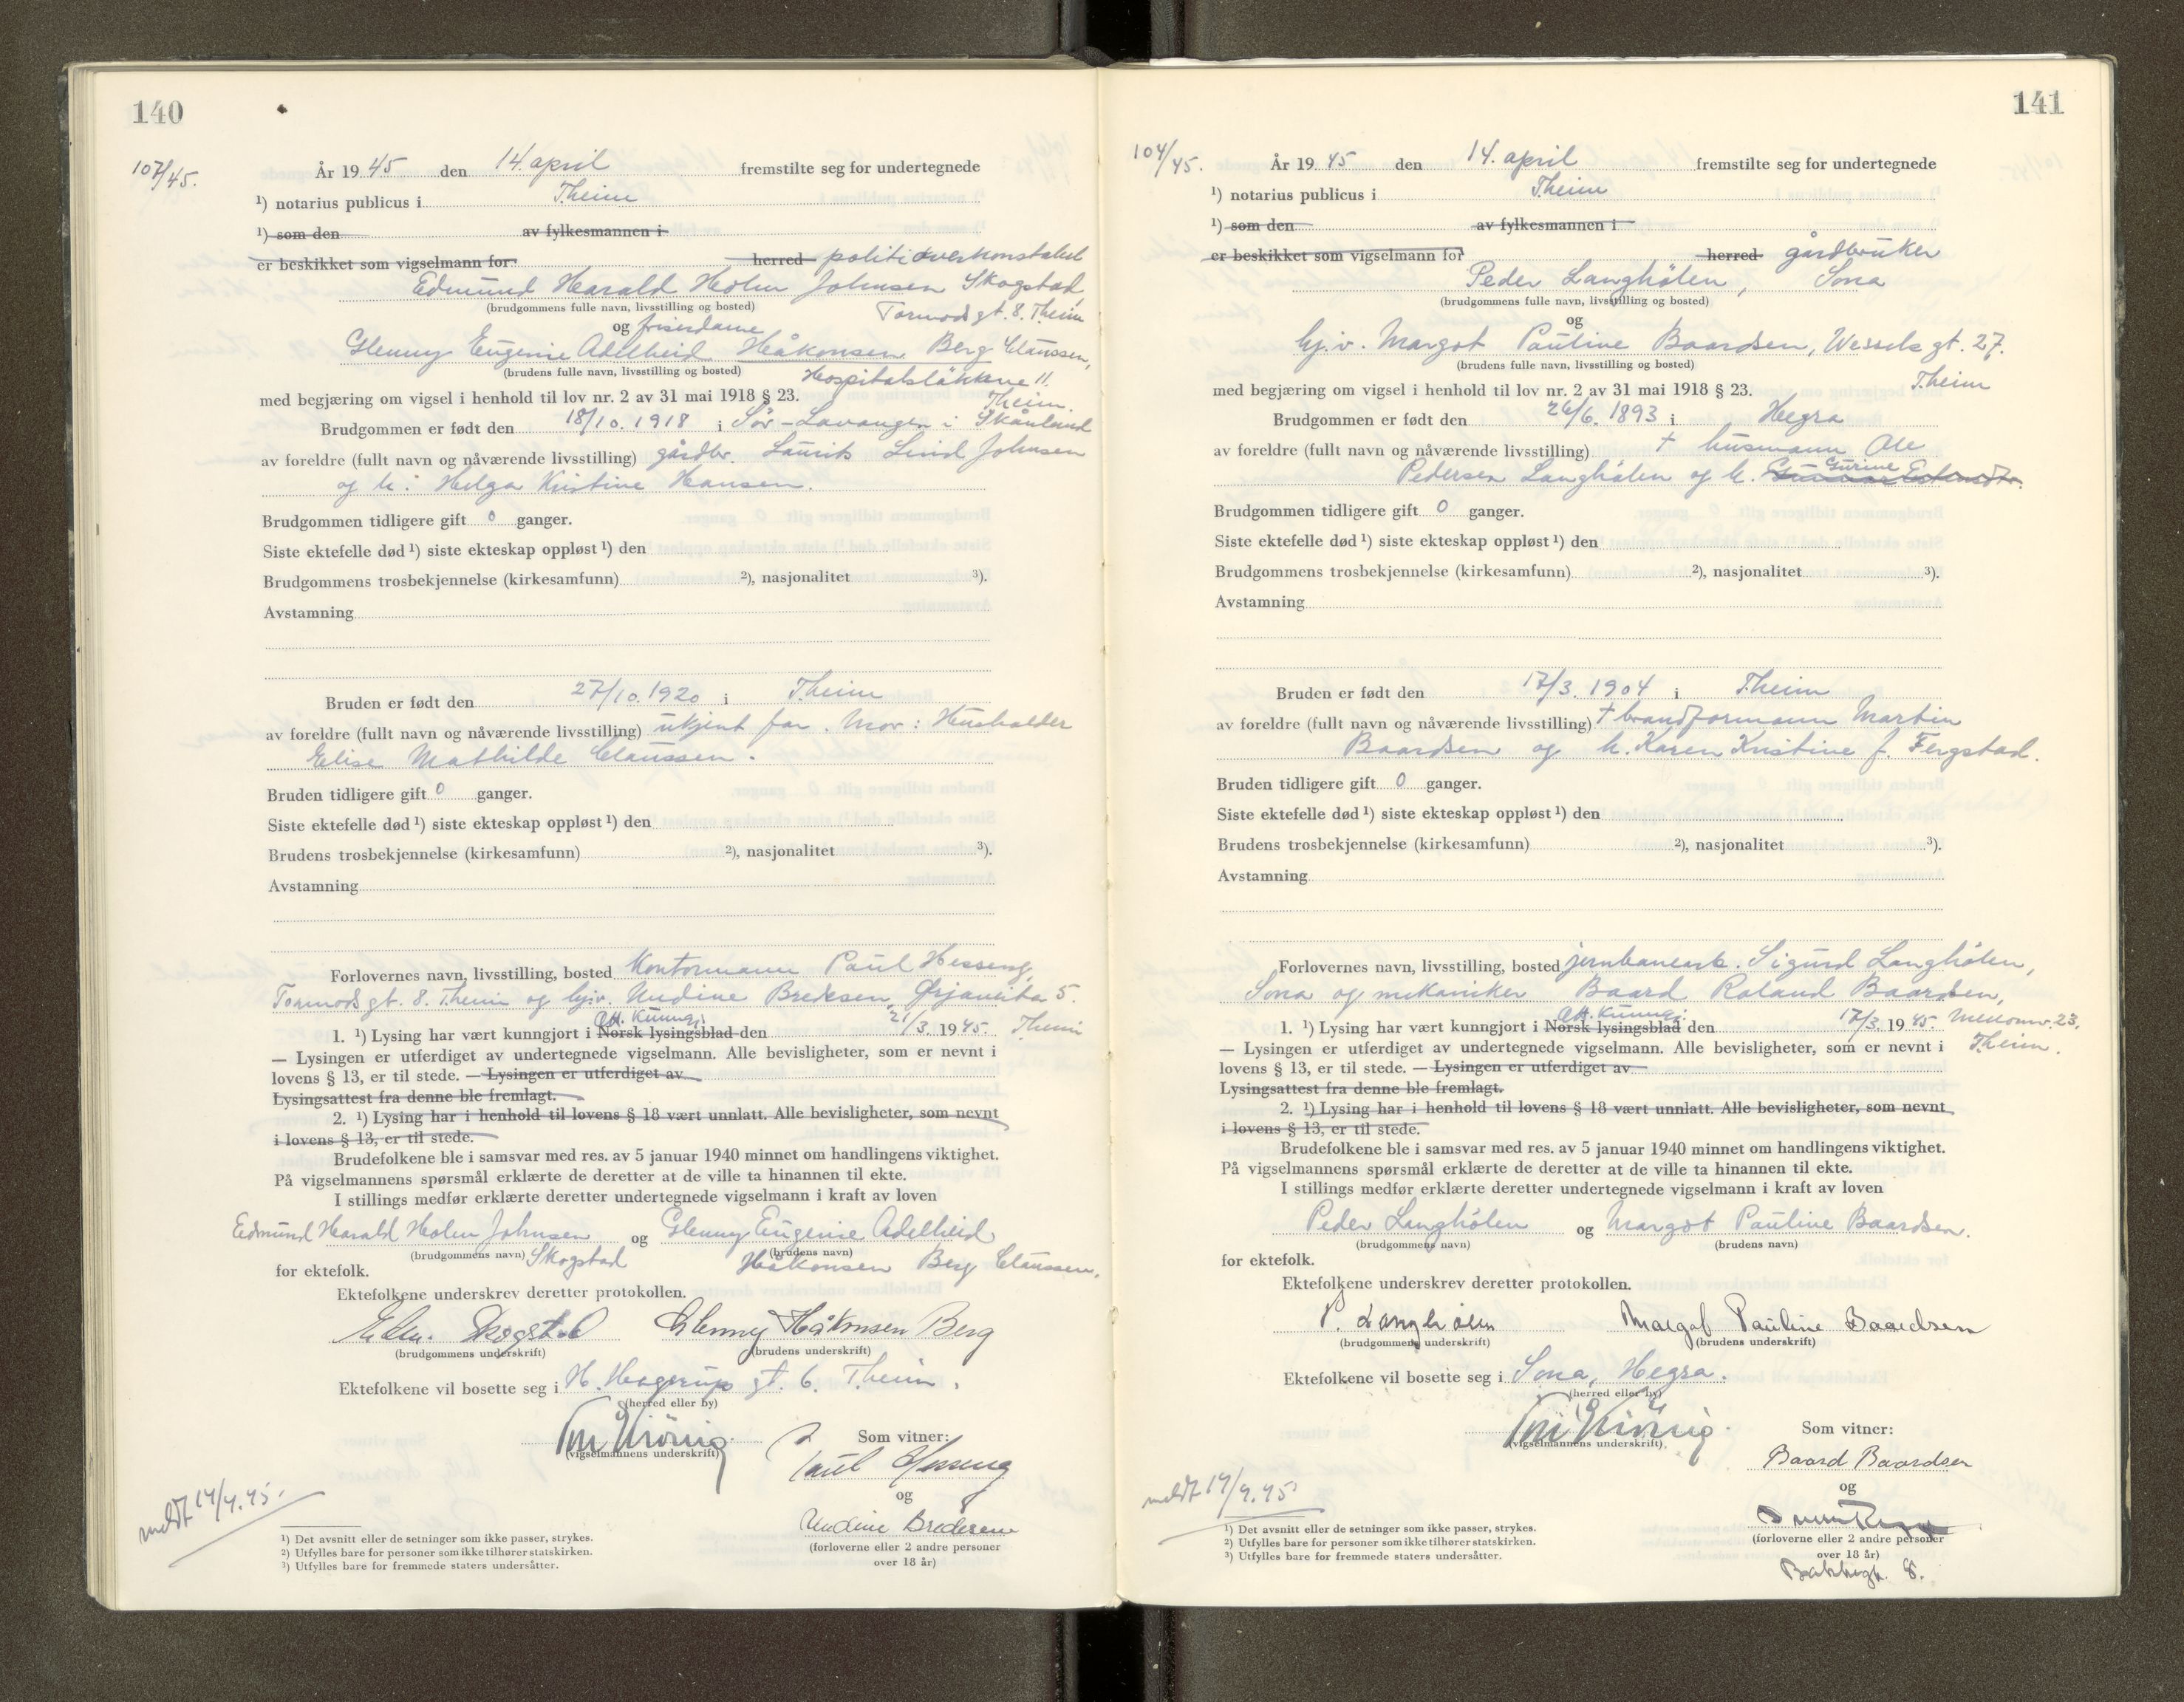 140
107/45.
År 19 45 den 14. april fremstilte seg for undertegnede
¹) notarius publicus i T.heim
¹) som den av fylkesmannen i
er beskikket som vigselmann for herred politioverkonstabel
Edmund Harald Holm Johnsen Skogstad,
(brudgommens fulle navn, livsstilling og bosted) Tormodsgt. 8. T.heim
og friserdame
Glenny Eugenie Adelheid Håkonsen Berg Claussen,
(brudens fulle navn, livsstilling og bosted) Hospitalsløkkene 11.
med begjæring om vigsel i henhold til lov nr. 2 av 31 mai 1918 § 23. T.heim.
Brudgommen er født den 18/10. 1918 i Sør-Lavangen i Skånland
av foreldre (fullt navn og nåværende livsstilling) gårdbr. Laurits Lind Johnsen
og h. Helga Kristine Hansen.
Brudgommen tidligere gift 0 ganger.
Siste ektefelle død ¹) siste ekteskap oppløst ¹) den
Brudgommens trosbekjennelse (kirkesamfunn) ²), nasjonalitet ³).
Avstamning
Bruden er født den 27/10. 1920 i T.heim
av foreldre (fullt navn og nåværende livsstilling) ukjent far. Mor: Husholder
Elise Mathilde Claussen.
Bruden tidligere gift 0 ganger.
Siste ektefelle død ¹) siste ekteskap oppløst ¹) den
Brudens trosbekjennelse (kirkesamfunn) ²), nasjonalitet ³).
Avstamning
Forlovernes navn, livsstilling, bosted Kontormann Paul Hesseng,
Tormodsgt. 8. T.heim og hj.v. Undine Bredesen, Ørjaveita 5.
1. ¹) Lysing har vært kunngjort i Norsk lysingsblad den Off. Kunngj. 21/3 19 45. T.heim
— Lysingen er utferdiget av undertegnede vigselmann. Alle bevisligheter, som er nevnt i
lovens § 13, er til stede. — Lysingen er utferdiget av
Lysingsattest fra denne ble fremlagt.
2. ¹) Lysing har i henhold til lovens § 18 vært unnlatt. Alle bevisligheter, som nevnt
i lovens § 13, er til stede.
Brudefolkene ble i samsvar med res. av 5 januar 1940 minnet om handlingens viktighet.
På vigselmannens spørsmål erklærte de deretter at de ville ta hinannen til ekte.
I stillings medfør erklærte deretter undertegnede vigselmann i kraft av loven
Edmund Harald Holm Johnsen og Glenny Eugenie Adelheid
(brudgommens navn) Skogstad (brudens navn) Håkonsen Berg Claussen,
for ektefolk.
Ektefolkene underskrev deretter protokollen.
Edm. Skogstad Glenny Håkonsen Berg
(brudgommens underskrift) (brudens underskrift)
Ektefolkene vil bosette seg i H. Hagerups gt. 6. T.heim.
(herred eller by)
(vigselmannens underskrift) Som vitner:
Paul Hesseng
og
Undine Bredesen
(forloverne eller 2 andre personer
over 18 år)
meldt 14/4.45.
¹) Det avsnitt eller de setninger som ikke passer, strykes.
²) Utfylles bare for personer som ikke tilhører statskirken.
³) Utfylles bare for fremmede staters undersåtter.
141
104/45.
År 19 45 den 14. april fremstilte seg for undertegnede
¹) notarius publicus i T.heim
¹) som den av fylkesmannen i
er beskikket som vigselmann for herred gårdbruker
Peder Langhölen, Sona
(brudgommens fulle navn, livsstilling og bosted)
og
hj.v. Margot Pauline Baardsen, Wesselsgt. 27.
(brudens fulle navn, livsstilling og bosted)
med begjæring om vigsel i henhold til lov nr. 2 av 31 mai 1918 § 23. T.heim
Brudgommen er født den 26/6. 1893 i Hegra
av foreldre (fullt navn og nåværende livsstilling) † husmann Ole
Pedersen Langhölen og h. Gurine Estensdtr.
Brudgommen tidligere gift 0 ganger.
Siste ektefelle død ¹) siste ekteskap oppløst ¹) den
Brudgommens trosbekjennelse (kirkesamfunn) ²), nasjonalitet ³).
Avstamning
Bruden er født den 17/3. 1904 i T.heim
av foreldre (fullt navn og nåværende livsstilling) † brandformann Martin
Baardsen og h. Karen Kristine f. Fergstad.
Bruden tidligere gift 0 ganger.
Siste ektefelle død ¹) siste ekteskap oppløst ¹) den
Brudens trosbekjennelse (kirkesamfunn) ²), nasjonalitet ³).
Avstamning
Forlovernes navn, livsstilling, bosted jernbanearb. Sigurd Langhölen,
Sona og mekaniker Baard Roland Baardsen,
1. ¹) Lysing har vært kunngjort i Norsk lysingsblad den Off. Kunngj. 17/3 19 45. Mellomv. 23,
— Lysingen er utferdiget av undertegnede vigselmann. Alle bevisligheter, som er nevnt i T.heim.
lovens § 13, er til stede. — Lysingen er utferdiget av
Lysingsattest fra denne ble fremlagt.
2. ¹) Lysing har i henhold til lovens § 18 vært unnlatt. Alle bevisligheter, som nevnt
i lovens § 13, er til stede.
Brudefolkene ble i samsvar med res. av 5 januar 1940 minnet om handlingens viktighet.
På vigselmannens spørsmål erklærte de deretter at de ville ta hinannen til ekte.
I stillings medfør erklærte deretter undertegnede vigselmann i kraft av loven
Peder Langhölen og Margot Pauline Baardsen.
(brudgommens navn) (brudens navn)
for ektefolk.
Ektefolkene underskrev deretter protokollen.
P. Langhölen Margot Pauline Baardsen
(brudgommens underskrift) (brudens underskrift)
Ektefolkene vil bosette seg i Sona, Hegra.
(herred eller by)
(vigselmannens underskrift) Som vitner:
Baard Baardsen
og
(forloverne eller 2 andre personer
over 18 år)
Bakkegt. 8.
meldt 14/4.45
¹) Det avsnitt eller de setninger som ikke passer, strykes.
²) Utfylles bare for personer som ikke tilhører statskirken.
³) Utfylles bare for fremmede staters undersåtter.